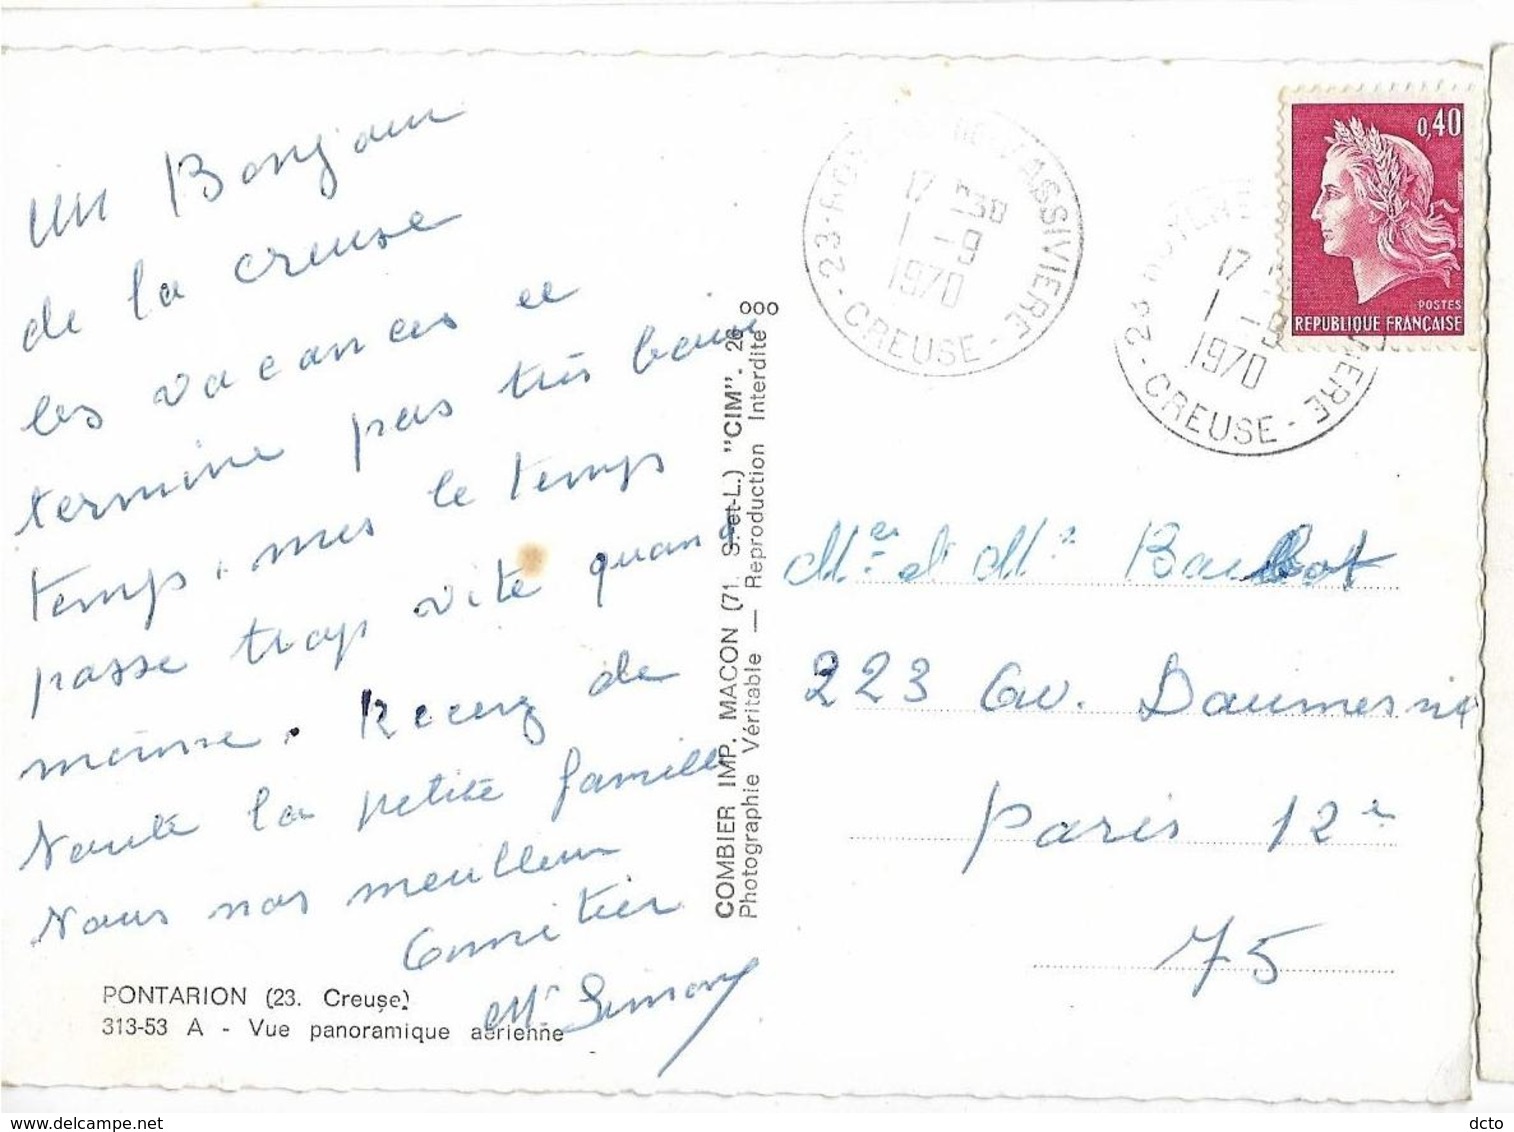 un Bonjour
de la creuse
les vacances ce
termine pas très beau
temps. mes le temps
passe trop vite quand
même. Recevez de
toute la petite famille
nous nos meilleur
amitier
Mr Simony
PONTARION (23. Creuse)
313-53 A - Vue panoramique aérienne
COMBIER IMP. MACON (71. S.-et-L.) "CIM". 26
Photographie Véritable — Reproduction Interdite
ooo
23 - DE VASSIVIERE - CREUSE -
17 H 30
1 - 9
1970
0,40
POSTES
REPUBLIQUE FRANÇAISE
17
1 - 9
1970
- CREUSE -
Me et Mr
223 av. Daumesnil
Paris 12e
75
dcto
delcampe.net